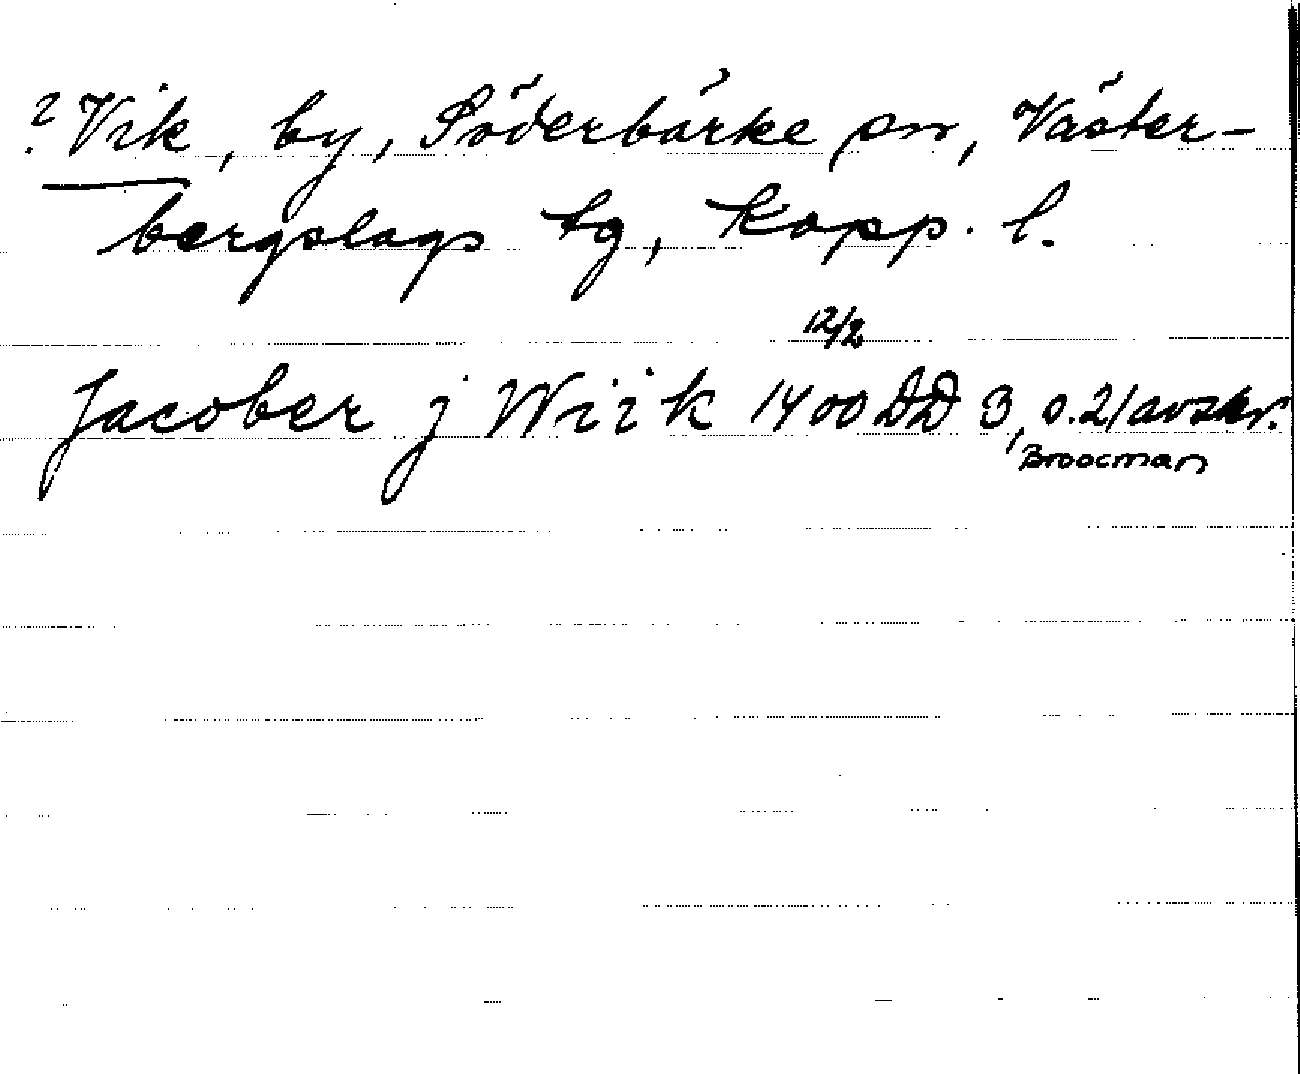 ? Vik, by, Söderbärke sn, Väster-
bergslags tg, Kopp. l.
12/2
Jacober j Wiik 1400 DD 3, s. 21 avskr.
Broocman